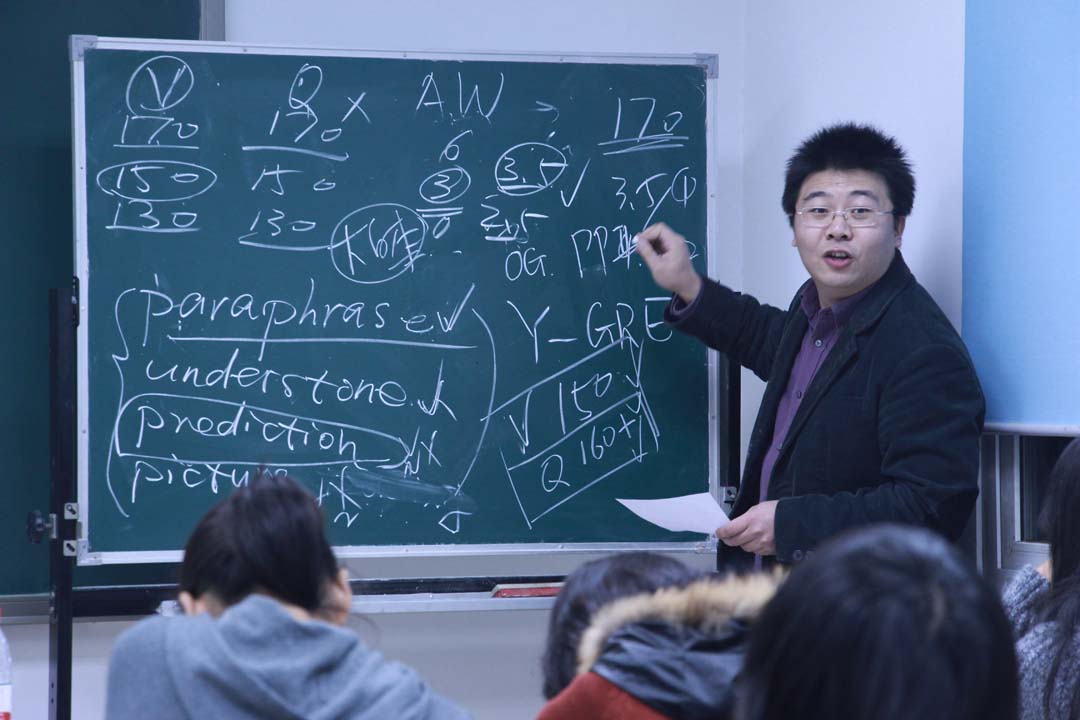 V Q × A.W → 170
170 170 6 3.5 ✓ 3.5/4
150 150 3 2.5
130 130 0 OG. PP
paraphrase ✓ Y-GRE
understone. V 150 ✓
prediction Q 160+
picture